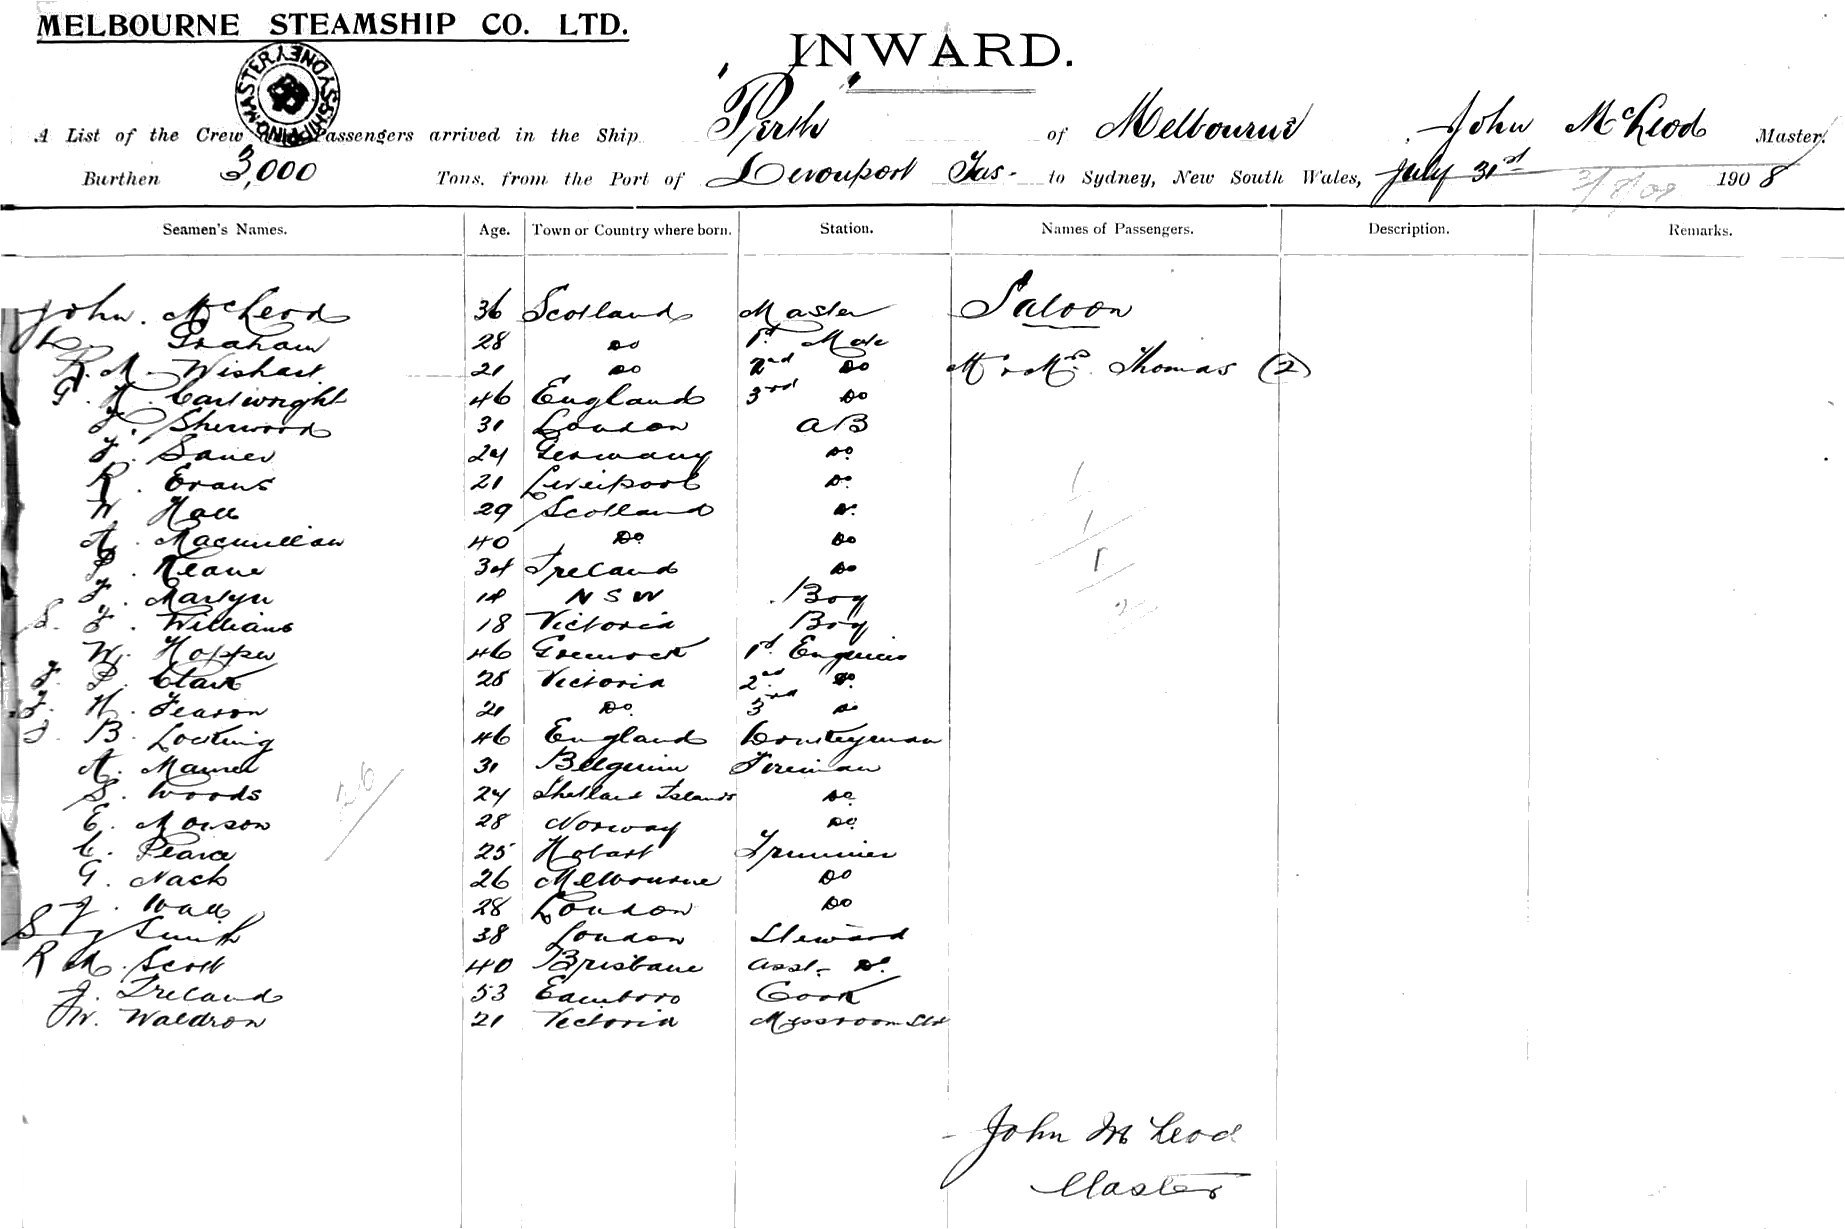 MELBOURNE STEAMSHIP CO. LTD.
INWARD.
SHIPPING MASTER SYDNEY
A List of the Crew and Passengers arrived in the Ship "Perth" of Melbourne, John McLeod Master.
Burthen 3,000 Tons, from the Port of Devonport Tas- to Sydney, New South Wales, July 31st 1908
3/8/08
Seamen's Names. Age. Town or Country where born. Station. Names of Passengers. Description. Remarks.
John. McLeod 36 Scotland Master Saloon
Graham 28 Do 1st Mate
R. M. Wishart 21 Do 2nd Do Mr & Mrs. Thomas (2)
G. H. Cartwright 46 England 3rd Do
Sherwood 31 London AB
Sauer 24 Germany Do
R. Evans 21 Liverpool Do
W Hall 29 Scotland Do
A. Macmillan 40 Do Do
P. Keane 34 Ireland Do
J. Martyn 18 NSW Boy
S. J. Williams 18 Victoria Boy
W. Hopper 46 Greenock 1st Engineer
J. P. Clark 28 Victoria 2nd Do
H. Fearon 21 Do. 3rd Do
B. Locking 46 England Donkeyman
A. Maurer 31 Belguim Fireman
S. Woods 24 Shetland Islands Do
E. Monson 28 Norway Do
C. Pearce 25 Hobart Trimmer
G. Nash 26 Melbourne Do
J. Wall 28 London Do
S Smith 38 London Steward
R M. Scott 40 Brisbane Asst- Do
J. Ireland 53 Cook
W. Waldron 21 Victoria Messroom Std
26
John McLeod
Master